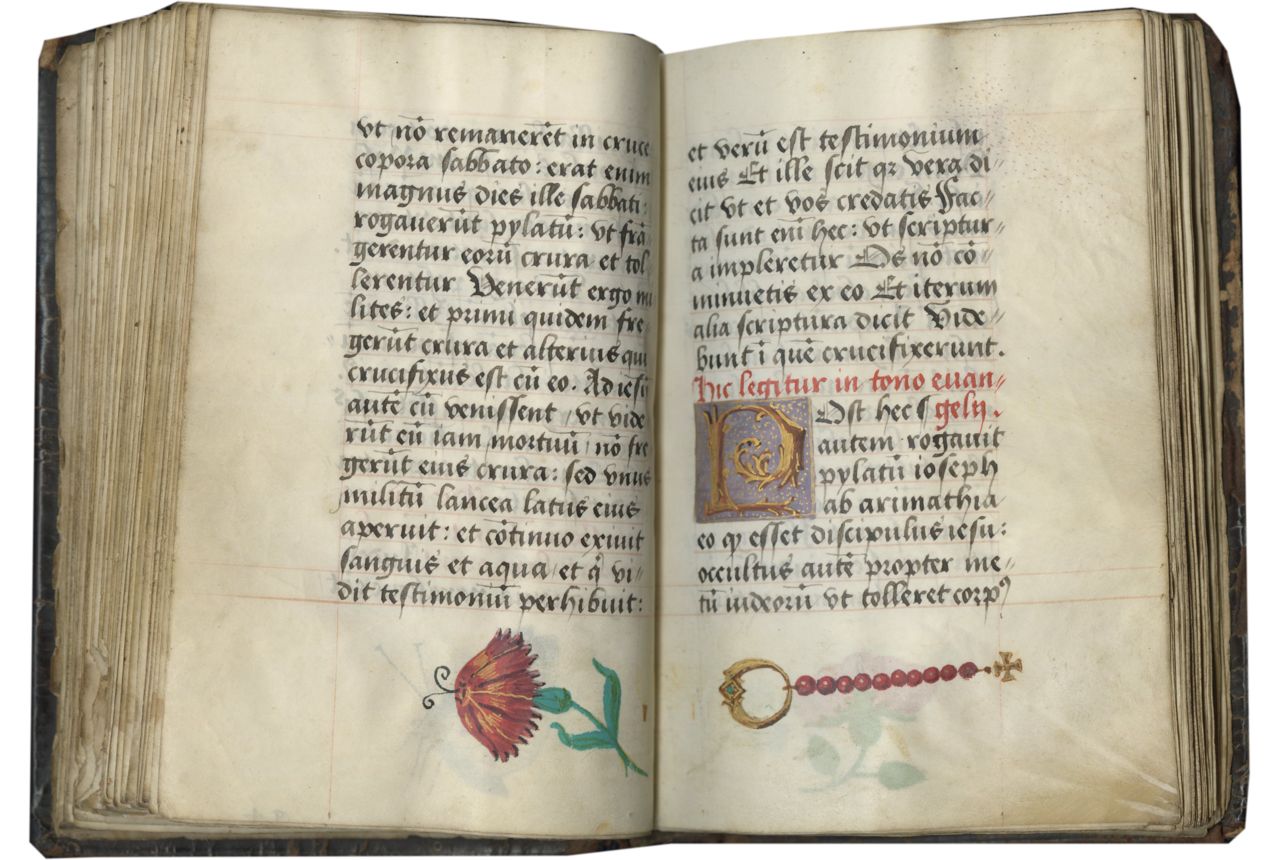 vt nō remanerēt in cruce
copora sabbato : erat enim
magnus dies ille sabbati :
rogauerūt pylatū : vt frā
gerentur eorū crura et tol
lerentur Venerūt ergo mi
lites : et primi quidem fre
gerūt crura et alterius qui
crucifixus est cū eo. Ad iesū
autē cū venissent / vt vide
rūt eū iam mortuū / nō fre
gerūt eius crura : sed vnus
militū lancea latus eius
aperuit : et cōtinuo exiuit
sanguis et aqua / et q̄ vi〃
dit testimoniū perhibuit :
et verū est testimonium
eius Et ille scit qꝫ vera di〃
cit vt et vos credatis Fac〃
ta sunt enī hec : vt scriptur〃
a impleretur Os nō cō〃
minuetis ex eo Et iterum
alia scriptura dicit Vide〃
bunt ī quē crucifixerunt.
hic legitur in tono euan〃
POst hec gelij.
autem rogauit
pylatū ioseph
ab arimathia
eo ꝙ esset discipulus iesu :
occultus autē propter me〃
tū iudeorū vt tolleret corpꝰ